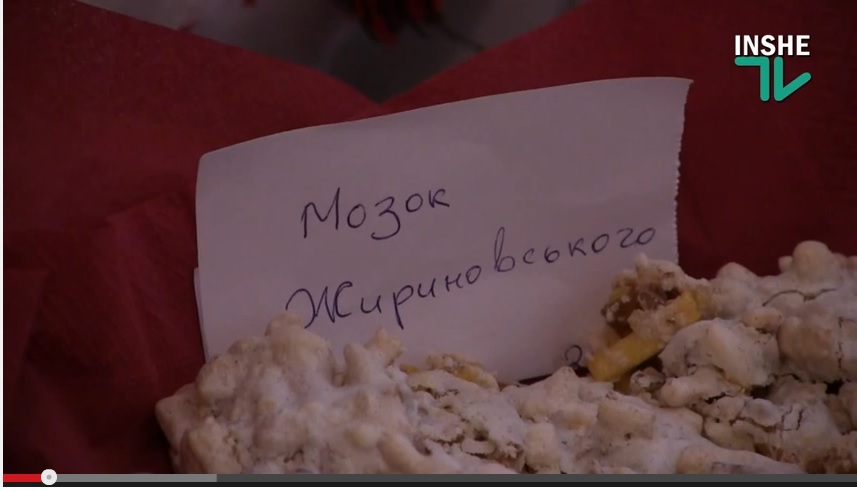 INSHE
TV
Мозок
Жириновського